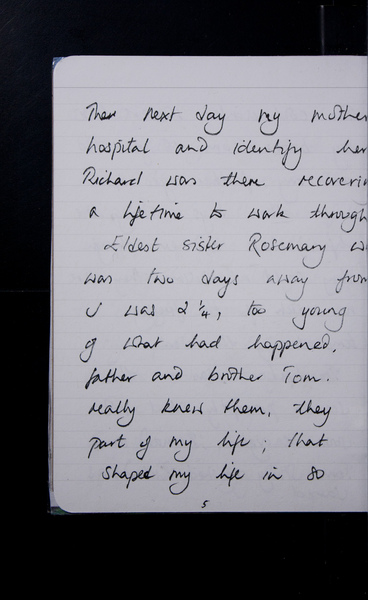 Then next day my mother
hospital and identify her
Richard was there recoverin
a lifetime to work through
Eldest sister Rosemary w
was two days away from
I was 2 1/4, too young
of what had happened.
father and brother Tom.
really knew them, they
part of my life; that
shaped my life in so
5